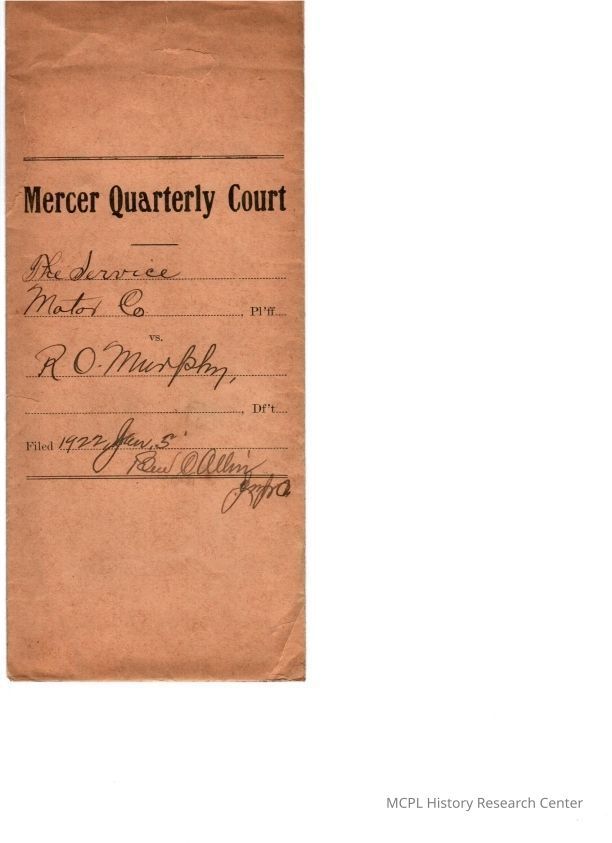 Mercer Quarterly Court
The Service
Motor Co , Pl'ff
vs.
R O. Murphy,
, Df't
Filed 1922, Jan, 5
Ben C. Allin
MCPL History Research Center